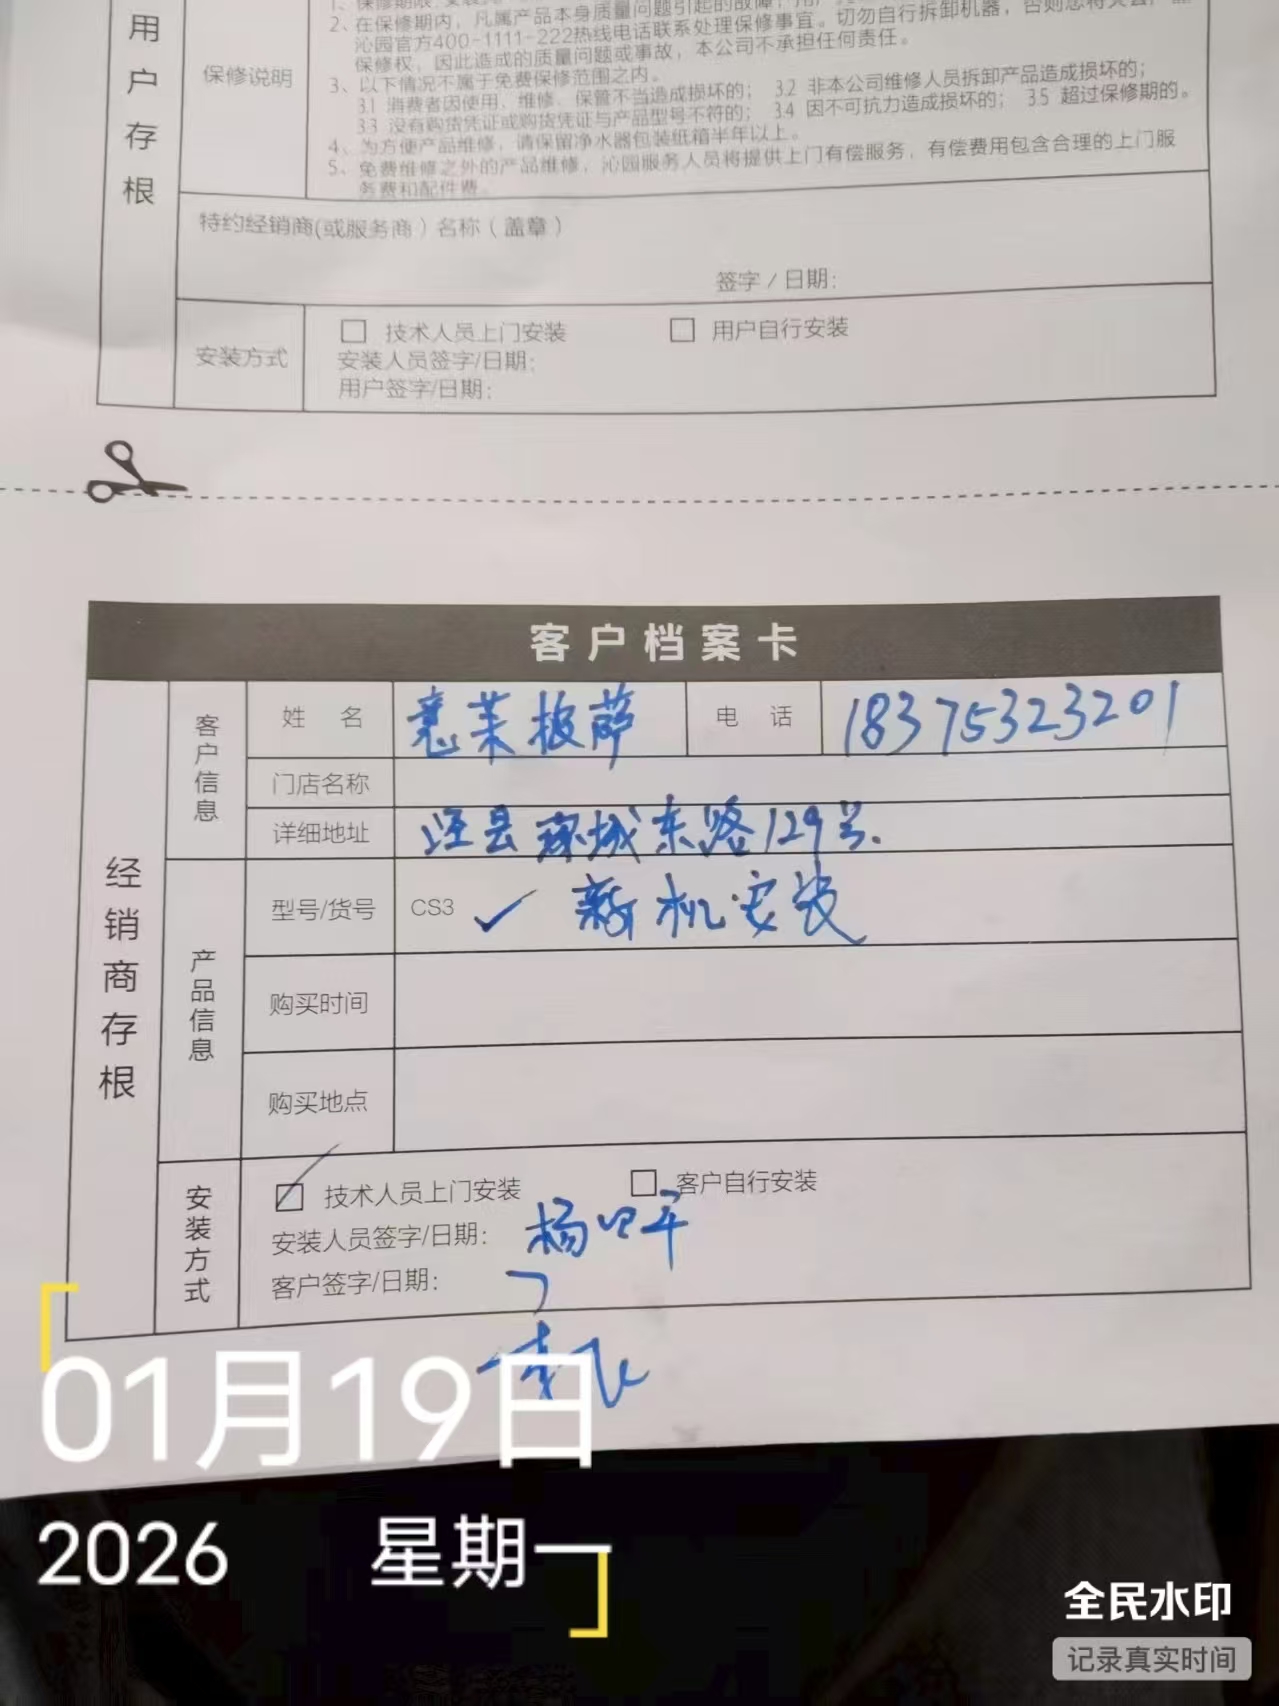 用户存根
保修说明
2、在保修期内，凡属产品本身质量问题引起的故障，
沁园官方400-1111-222热线电话联系处理保修事宜。切勿自行拆卸机器，否则您将
保修权，因此造成的质量问题或事故，本公司不承担任何责任。
3、以下情况不属于免费保修范围之内。
3.1 消费者因使用、维修、保管不当造成损坏的； 3.2 非本公司维修人员拆卸产品造成损坏的；
3.3 没有购货凭证或购货凭证与产品型号不符的； 3.4 因不可抗力造成损坏的； 3.5 超过保修期的。
4、为方便产品维修，请保留净水器包装纸箱半年以上。
5、免费维修之外的产品维修，沁园服务人员将提供上门有偿服务，有偿费用包含合理的上门服
务费和配件费。
特约经销商(或服务商）名称（盖章）
签字 / 日期：
安装方式
技术人员上门安装 用户自行安装
安装人员签字/日期：
用户签字/日期：
客户档案卡
经销商存根
客户信息
姓 名 意莱披萨 电 话 18375323201
门店名称
详细地址 泾县 城东路129号.
产品信息
型号/货号 CS3 ✓ 新机安装
购买时间
购买地点
安装方式
技术人员上门安装 客户自行安装
安装人员签字/日期： 杨
客户签字/日期：
01月19日
2026 星期一
全民水印
记录真实时间